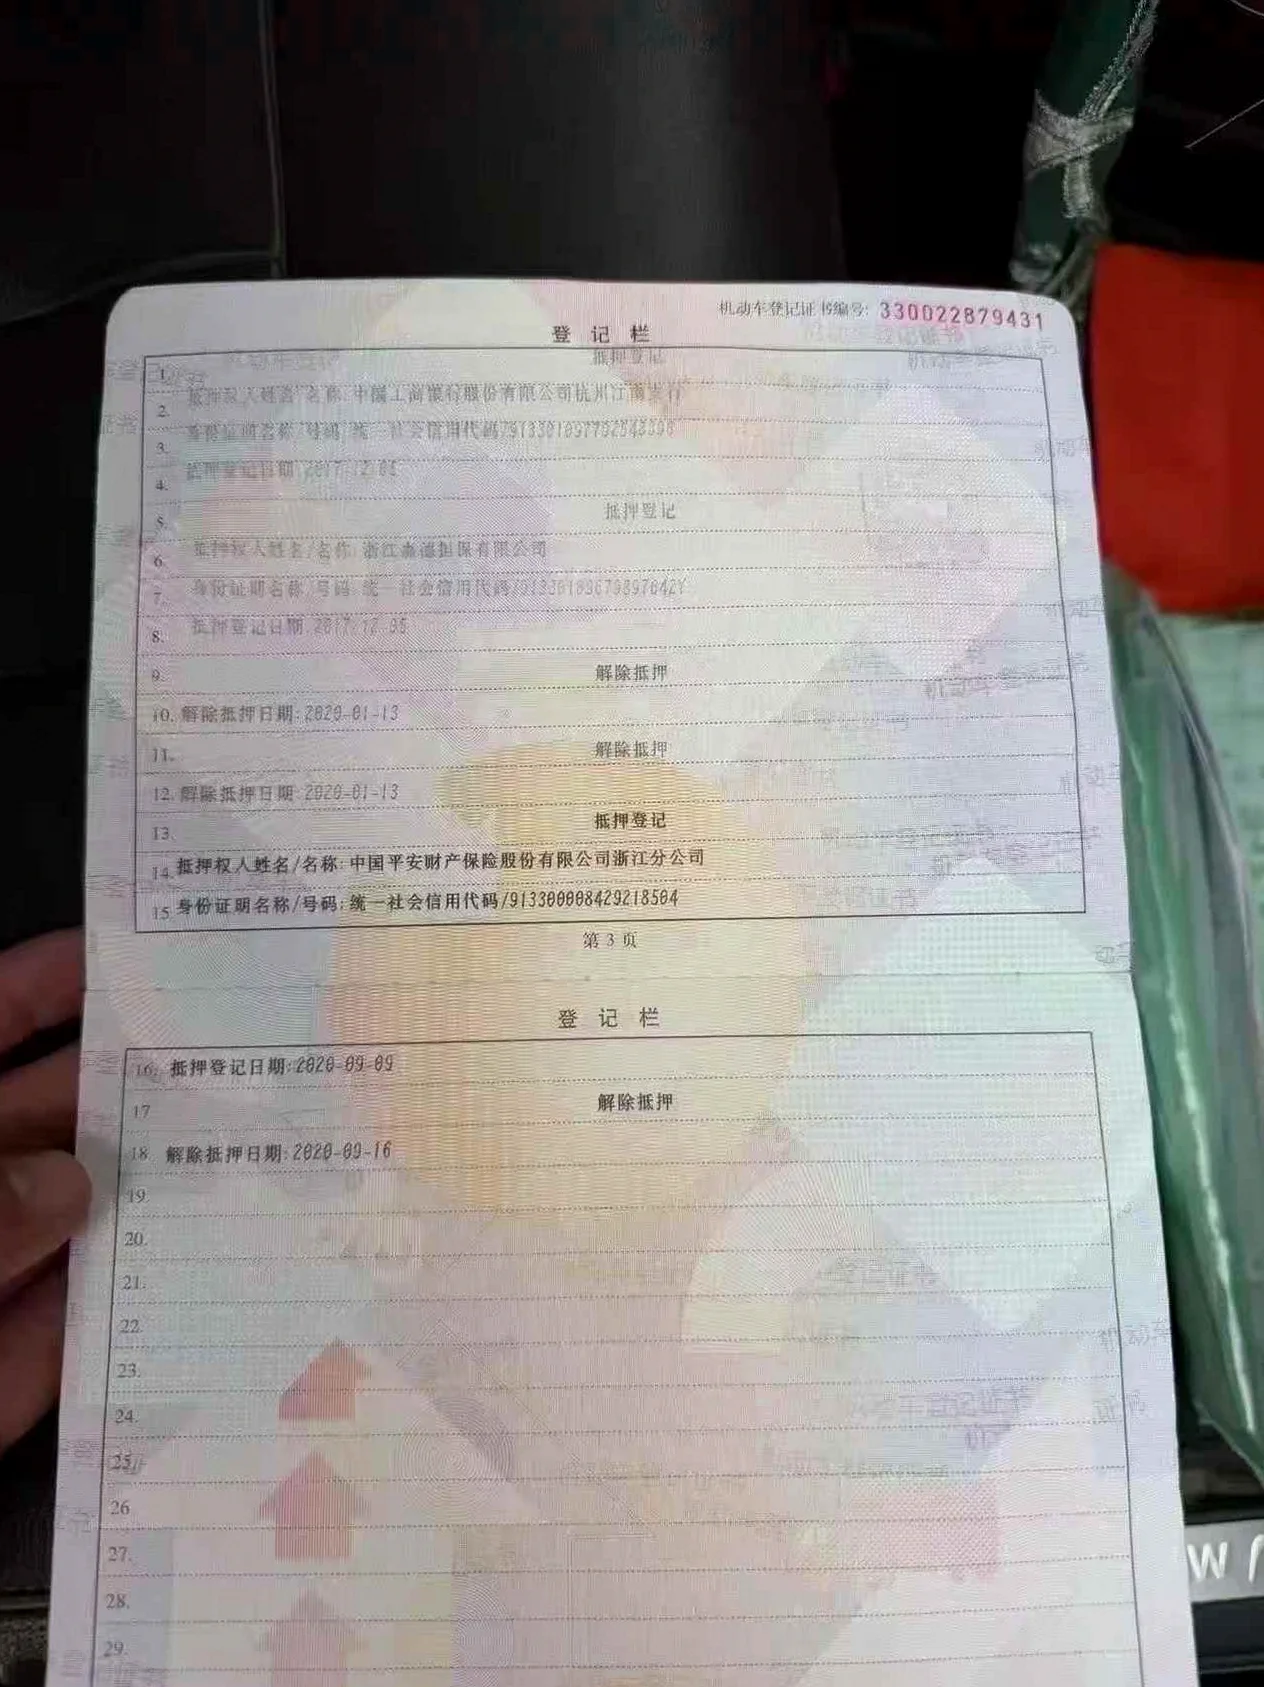 机动车登记证书编号: 330022879431
登 记 栏
1. 抵押登记
2. 抵押权人姓名/名称:中国工商银行股份有限公司杭州江南支行
3. 身份证明名称/号码:统一社会信用代码/
4. 抵押登记日期:2017-12-01
5. 抵押登记
6. 抵押权人姓名/名称:浙江 担保有限公司
7. 身份证明名称/号码:统一社会信用代码/
8. 抵押登记日期:2017-12-05
9. 解除抵押
10. 解除抵押日期:2020-01-13
11. 解除抵押
12. 解除抵押日期:2020-01-13
13. 抵押登记
14. 抵押权人姓名/名称:中国平安财产保险股份有限公司浙江分公司
15. 身份证明名称/号码:统一社会信用代码/913300008429218504
第 3 页
登 记 栏
16. 抵押登记日期:2020-09-09
17 解除抵押
18. 解除抵押日期:2020-09-16
19.
20.
21.
22.
23.
24.
25.
26
27.
28.
29.
W